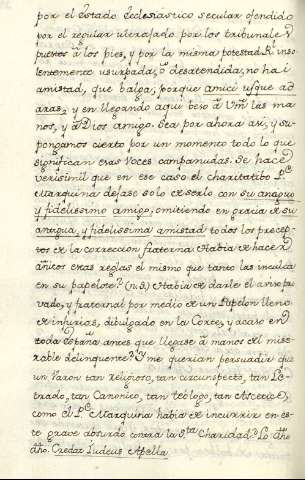 por el Estado Ecclesiastico secular ofendido
por el regular ultrajado por los tribunales
puestos â los pies, y por la misma potestad R. inso
lentemente usurpada, ô desatendida, no hai
amistad, que balga, porque amici usque ad
aras, y en llegando aqui beso â Vm.d las ma
nos, y â Dios amigo. Sea por ahora asi, y su-
pongamos cierto por un momento todo lo que
significan esas voces campanudas. Se hace
verisimil que en ese caso el charitatibo P.e
Marquina dejase solo de serlo con su antiguo
y fidelissimo amigo, omitiendo en gracia de su
antigua, y fidelissima amistad todos los precep-
tos de la correccion fraterna? Habia de hacer
añicos esas reglas el mismo que tanto las inculca
en su papelote? (n. 3.) Habia de darle el aviso pri
vado, y fraternal por medio de un Papelon lleno
de injurias, dibulgado en la Corte, y acaso en
toda España antes que llegase â manos del mise-
rable delinquente? Y me querian persuadir que
un Varon tan Religioso, tan circunspecto, tan Le-
trado, tan Canonico, tan Teologo, tan Ascetico,
como el P.e Marquina habia de incurrir en es-
te grave absurdo contra la S.ta Charidad?
Credat Judeus Apella.